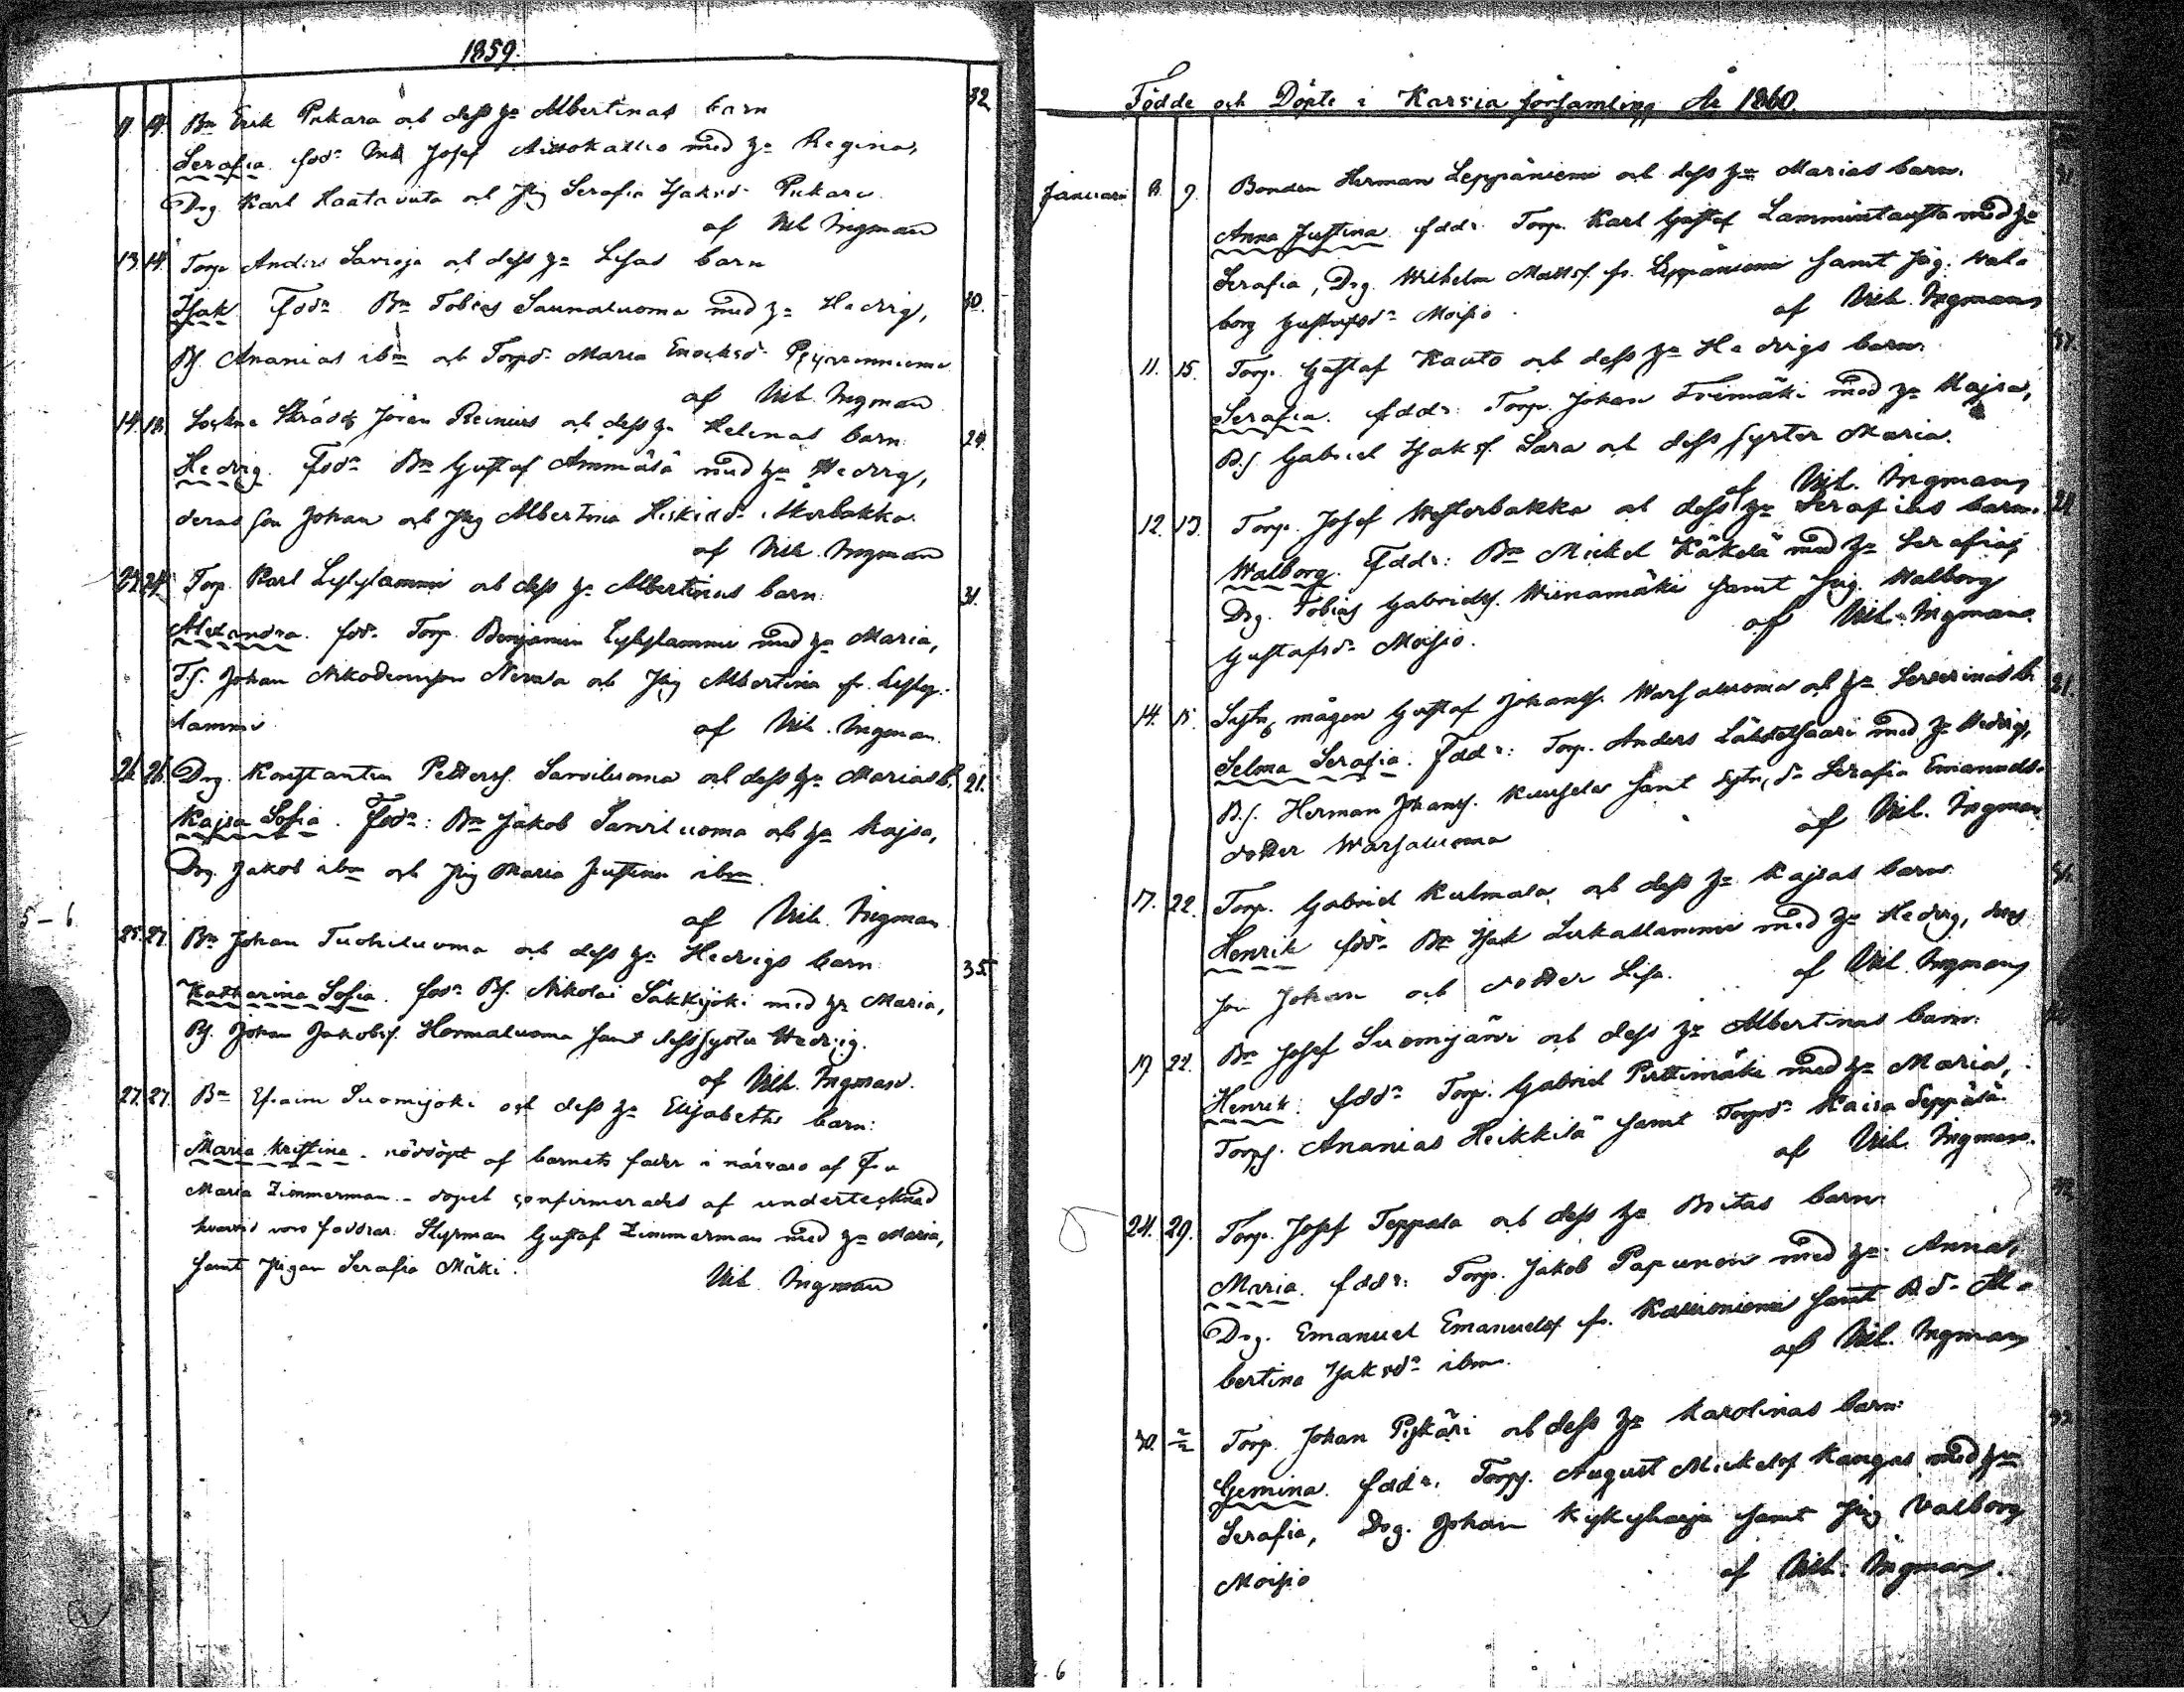 1859.
32
11. 19. Bn Erik Pukara och dess h:u Albertinas barn
Serafia. fddr Josef Aittokallio med h:u Regina,
Drg Karl Haataviita och Pig Serafia Isaksd: Pukara
af Vilh Ingman
13. 14. Torp Anders Sarvioja och dess h:u Lisas barn
Isak. Fddr Bn Tobias Saunaluoma med h:u Hedvig, 30.
Bs. Ananias ibm och Torpd: Maria Enoksd:
af Vilh. Ingman
14. 18. Sockne Skrädd Jöran Reinius och dess h:u Helenas barn 24.
Hedvig. Fddr Bn Gustaf Ammälä med h:u Hedvig,
deras son Johan och Pig Albertina Hiskiasd:
af Vilh. Ingman
23. 24. Torp. Karl Lylylammi och dess h:u Albertinas barn 31.
Alexandra. fddr Torp. Benjamin Lylylammi med h:u Maria,
T.s. Johan Nikodemusson Nevala och Pig Albertina fr. Lyly-
lammi af Vilh. Ingman.
26. 26. Drg. Konstantin Petterss. Sarviluoma och dess h:u Marias b. 21.
Kajsa Sofia. Fddr: Bn Jakob Sarviluoma och h:u Kajsa,
Drg. Jakob ibm och Pig Maria Justina ibm
af Vilh. Ingman
5-6
25. 27. Bn Johan Tuohiluoma och dess h:u Hedvigs barn 35.
Katharina Sofia. fddr Bs. Nikolai Säkkijoki med h:u Maria,
Bs. Johan Jakobs. Hormaluoma samt dess syster Hedvig.
af Vilh. Ingman.
27. 27. Bn Efraim Suomijoki och dess h:u Elisabeths barn:
Maria Kristina. nöddöpt af barnets fader i närvaro af Fru
Maria Zimmerman. - dopet confirmerades af undertecknad
hvarvid voro faddrar: Styrman Gustaf Zimmerman med h:u Maria,
samt Pigan Serafia Mäki. Vilh. Ingman
Födde och Döpte i Karvia församling År 1860.
Januari 8. 9. Bonden Herman Leppäniemi och dess h:u Marias barn.
Anna Justina. fddr: Torp. Karl Gustaf Lamminlausta med h:u
Serafia, Drg. Wilhelm Matts. fr. Leppäniemi samt Pig. Wal-
borg Gustafsd: Moisio. af Vilh. Ingman
11. 15. Torp. Gustaf Rauto och dess h:u Hedvigs barn.
Serafia. fddr: Torp. Johan med h:u Majsa,
B.s. Gabriel Isaks. Sara och dess syster Maria.
af Vilh. Ingman
12. 13. Torp. Josef Westerbakka och dess h:u Serafias barn.
Walborg. Fddr: Bn Mickel Käkelä med h:u Serafia,
Drg. Tobias Gabriels. Wiinamäki samt Pig. Walborg
Gustafsd: Moisio. af Vilh. Ingman.
14. 15. Sytn. mågen Gustaf Johans. Warsaluoma och h:u Severinas b.
Selma Serafia. Fddr: Torp. Anders Lähteesaari med h:u Hedvig,
B.s. Herman Johans. Kuusela samt Sytn. d: Serafia Emanuels-
dotter Warsaluoma af Vilh. Ingman
17. 22. Torp. Gabriel Kulmala och dess h:u Kajsas barn
Henrik. fddr Bn Isak Liikallammi med h:u Hedvig, deras
son Johan och dotter Lisa. af Vilh. Ingman
19. 22. Bn Josef Suomijärvi och dess h:u Albertinas barn.
Henrik. fddr Torp. Gabriel Puttimäki med h:u Maria,
Torps. Ananias Heikkilä samt Torpd: Kaisa Seppälä.
af Vilh. Ingman.
24. 29. Torp. Josef Teppala och dess h:u Britas barn.
Maria. fddr: Torp. Jakob Papunen med h:u Anna,
Drg. Emanuel Emanuels. fr. Kallioniemi samt B.d: Al-
bertina Isaksd: ibm. af Vilh. Ingman
30. 2/2 Torp. Johan Piskäri och dess h:u Karolinas barn:
Gemina. fddr. Torps. August Mickels. Kangas med h:u
Serafia, Drg. Johan Kykyharja samt Pig Valborg
Moisio af Vilh. Ingman.